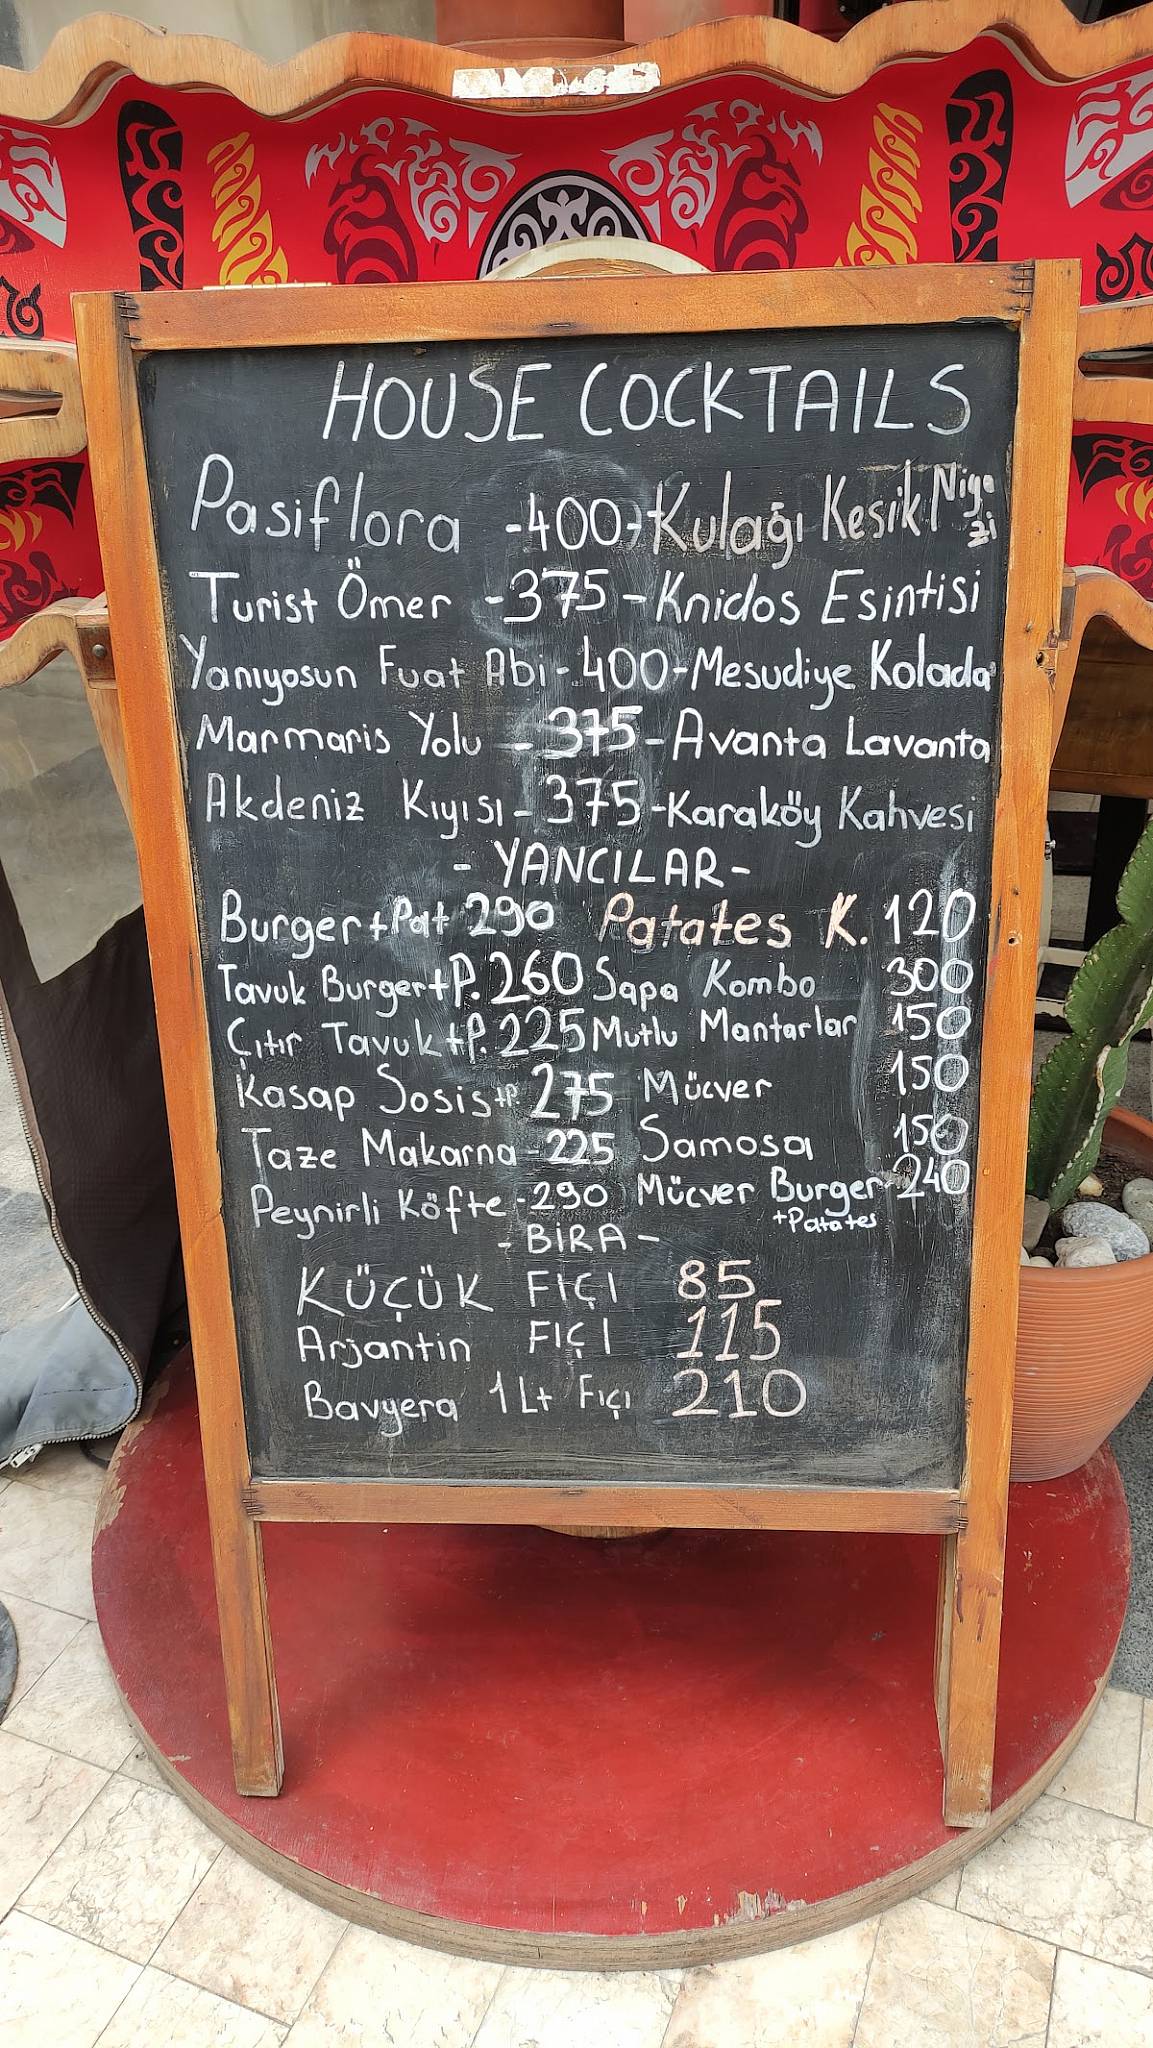 HOUSE COCKTAILS
Pasiflora -400- Kulağı Kesik Niyazi
Turist Ömer -375- Knidos Esintisi
Yanıyosun Fuat Abi -400- Mesudiye Kolada
Marmaris Yolu -375- Avanta Lavanta
Akdeniz Kıyısı -375- Karaköy Kahvesi
- YANCILAR -
Burger+Pat 290 Patates K. 120
Tavuk Burger+P. 260 Sapa Kombo 300
Çıtır Tavuk+P. 225 Mutlu Mantarlar 150
Kasap Sosis+P 275 Mücver 150
Taze Makarna - 225 Samosa 150
Peynirli Köfte - 290 Mücver Burger - 240
+Patates
- BİRA -
KÜÇÜK FIÇI 85
Arjantin FIÇI 115
Bavyera 1 Lt Fıçı 210